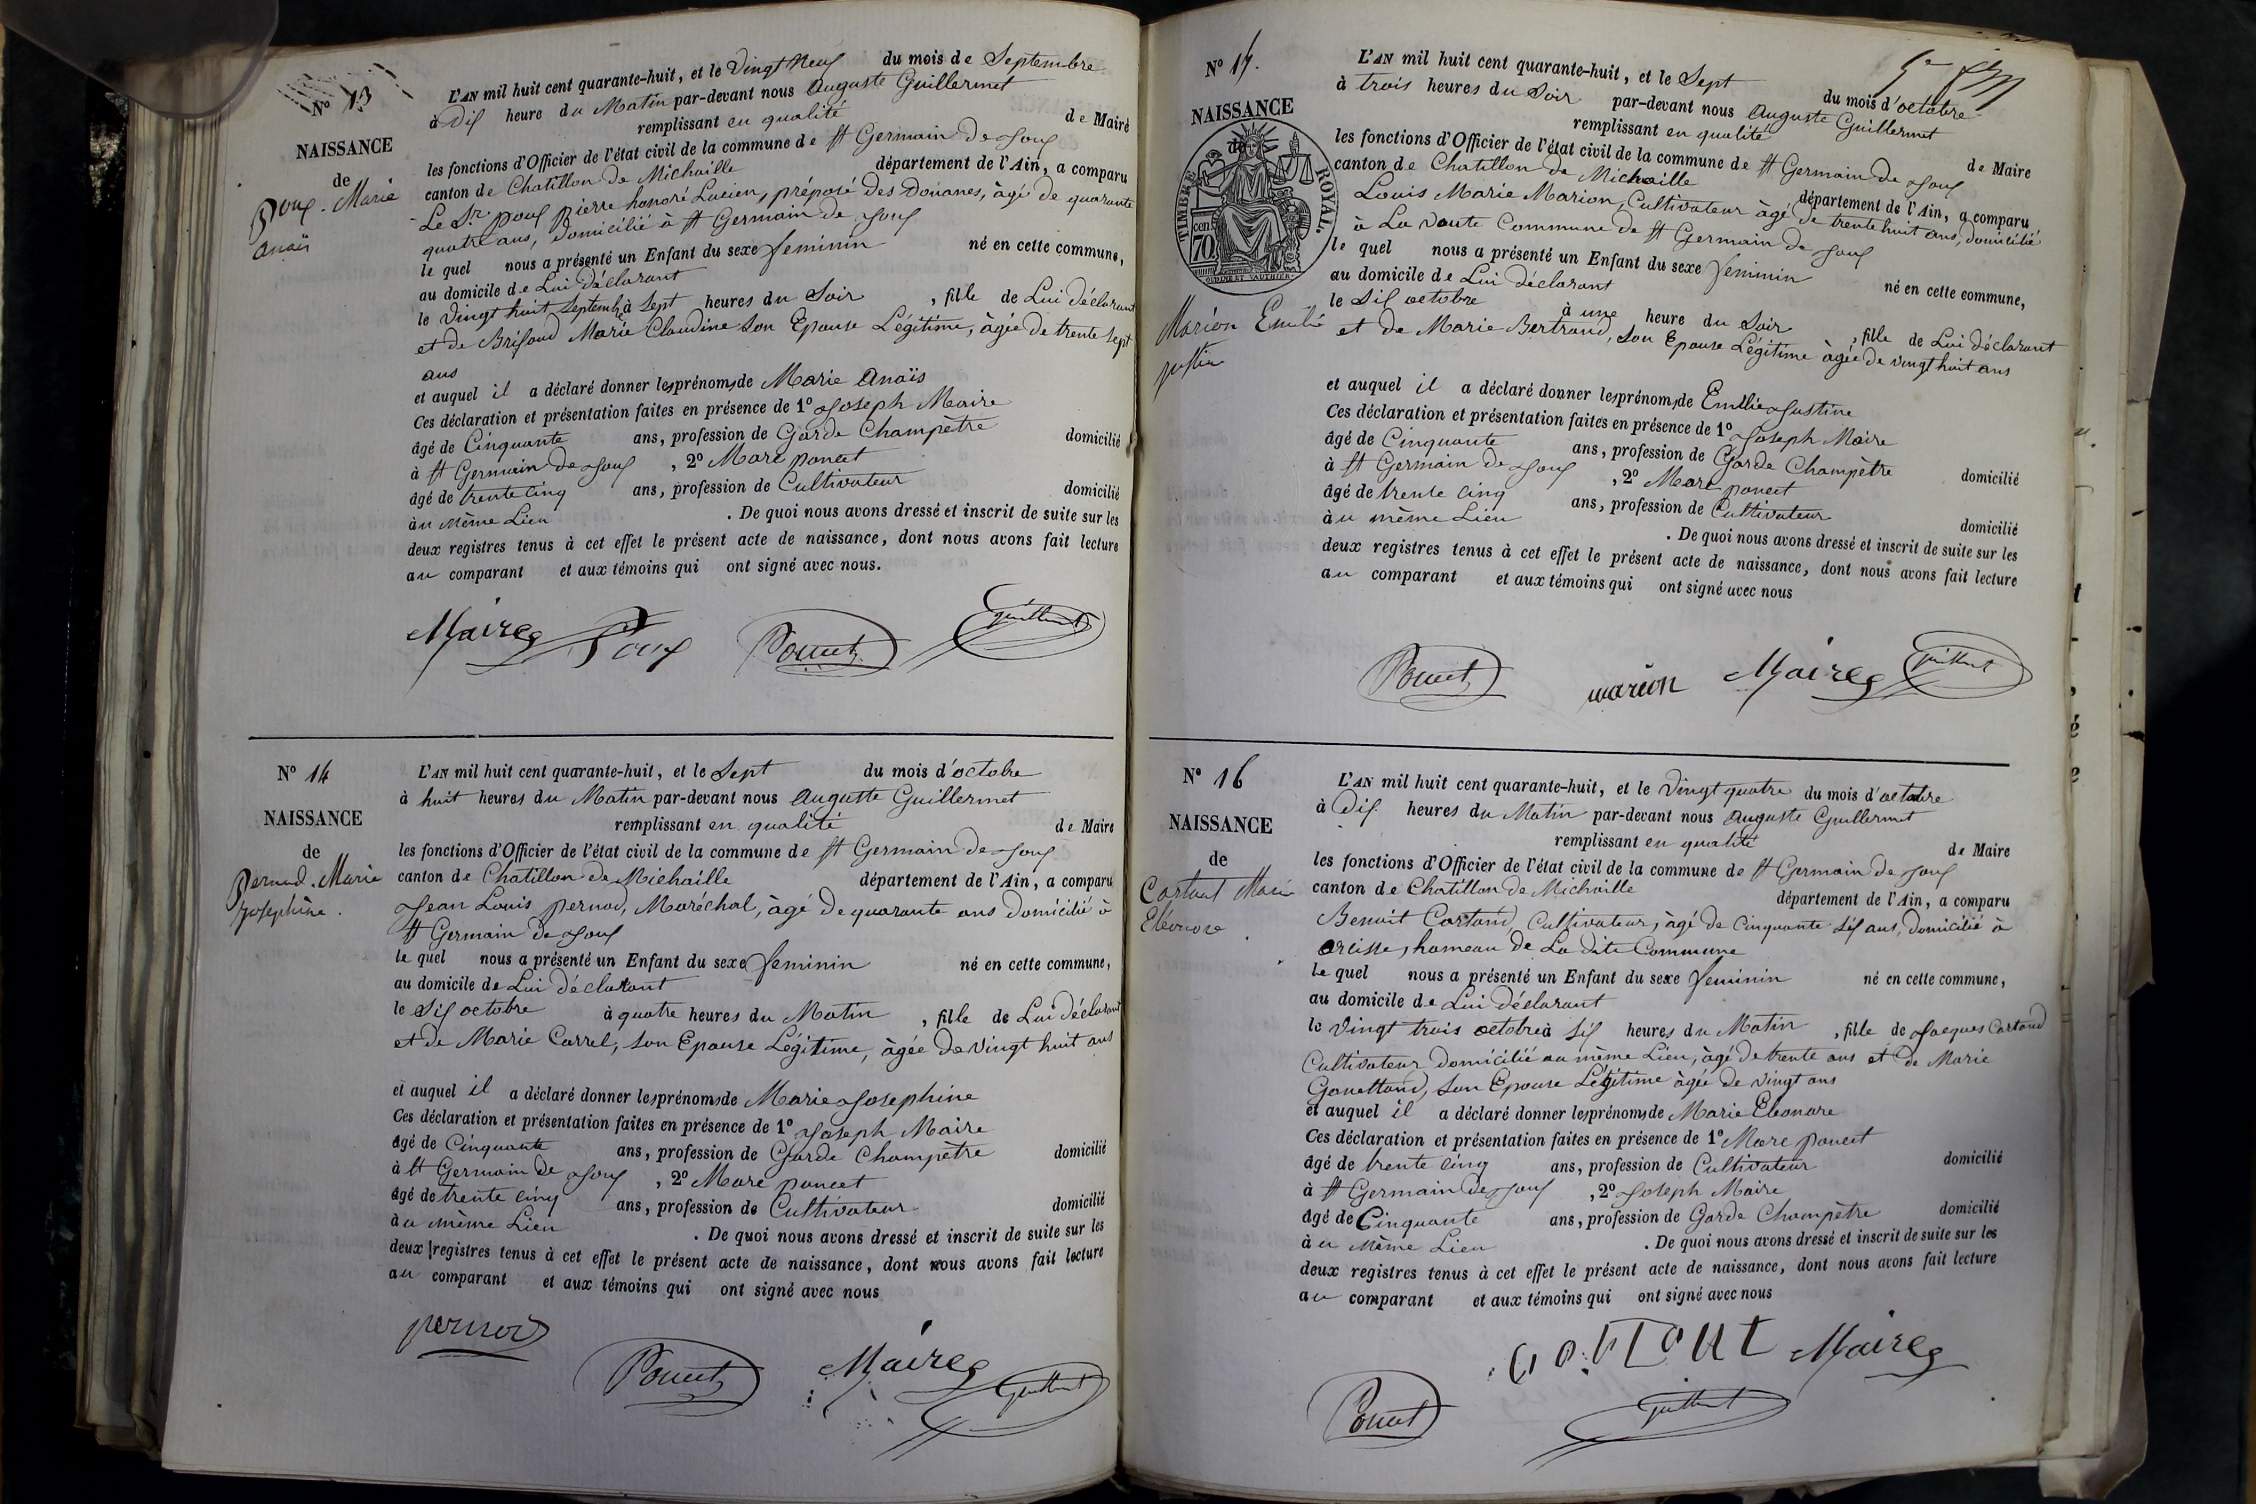 N° 13
NAISSANCE
de
Poux. Marie
Anaïs
L'AN mil huit cent quarante-huit, et le Vingt Neuf du mois de Septembre
à Dix heure du Matin par-devant nous Auguste Guillermet
remplissant en qualité de Maire
les fonctions d'Officier de l'état civil de la commune de St Germain de Joux
canton de Chatillon de Michaille département de l'Ain, a comparu
Le Sr. Poux Pierre honoré Lucien, préposé des Douanes, âgé de quarante
quatre ans, domicilié à St Germain de Joux
le quel nous a présenté un Enfant du sexe feminin né en cette commune,
au domicile de Lui déclarant
le Vingt huit Septembre à Sept heures du Soir , fille de Lui déclarant
et de Brisaud Marie Claudine Son Epouse Légitime, âgée de trente sept
ans
et auquel il a déclaré donner les prénoms de Marie Anaïs
Ces déclaration et présentation faites en présence de 1° Joseph Maire
âgé de Cinquante ans, profession de Garde Champètre domicilié
à St Germain de Joux , 2° Marc poncet
âgé de trente cinq ans, profession de Cultivateur domicilié
au même Lieu . De quoi nous avons dressé et inscrit de suite sur les
deux registres tenus à cet effet le présent acte de naissance, dont nous avons fait lecture
au comparant et aux témoins qui ont signé avec nous.
Maire Poux Poncet Guillermet
N° 14
NAISSANCE
de
Pernod. Marie
Josephine.
L'AN mil huit cent quarante-huit, et le Sept du mois d'octobre
à huit heures du Matin par-devant nous Auguste Guillermet
remplissant en qualité de Maire
les fonctions d'Officier de l'état civil de la commune de St Germain de Joux
canton de Chatillon de Michaille département de l'Ain, a comparu
Jean Louis pernod, Maréchal, âgé de quarante ans domicilié à
St Germain de Joux
le quel nous a présenté un Enfant du sexe feminin né en cette commune,
au domicile de Lui déclarant
le Six octobre à quatre heures du Matin , fille de Lui déclarant
et de Marie Carrel, son Epouse Légitime, âgée de vingt huit ans
et auquel il a déclaré donner les prénoms de Marie Josephine
Ces déclaration et présentation faites en présence de 1° Joseph Maire
âgé de Cinquante ans, profession de Garde Champètre domicilié
à St Germain de Joux , 2° Marc poncet
âgé de trente cinq ans, profession de Cultivateur domicilié
au même Lieu . De quoi nous avons dressé et inscrit de suite sur les
deux registres tenus à cet effet le présent acte de naissance, dont nous avons fait lecture
au comparant et aux témoins qui ont signé avec nous
pernod
Poncet Maire Guillermet
N° 15.
NAISSANCE
de
TIMBRE ROYAL.
70 cen
Marion Emilie
justine
L'AN mil huit cent quarante-huit, et le Sept du mois d'octobre
à trois heures du Soir par-devant nous Auguste Guillermet
remplissant en qualité de Maire
les fonctions d'Officier de l'état civil de la commune de St Germain de Joux
canton de Chatillon de Michaille département de l'Ain, a comparu
Louis Marie Marion, Cultivateur âgé de trente huit ans, domicilié
à La voute Commune de St Germain de Joux
le quel nous a présenté un Enfant du sexe feminin né en cette commune,
au domicile de Lui déclarant
le Six octobre à une heure du Soir , fille de Lui déclarant
et de Marie Bertrand, Son Epouse Légitime âgée de vingt huit ans
et auquel il a déclaré donner les prénoms de Emilie Justine
Ces déclaration et présentation faites en présence de 1° Joseph Maire
âgé de Cinquante ans, profession de Garde Champètre domicilié
à St Germain de Joux , 2° Marc poncet
âgé de trente cinq ans, profession de Cultivateur domicilié
au même Lieu . De quoi nous avons dressé et inscrit de suite sur les
deux registres tenus à cet effet le présent acte de naissance, dont nous avons fait lecture
au comparant et aux témoins qui ont signé avec nous
Poncet marion Maire Guillermet
N° 16
NAISSANCE
de
Cartout Marie
Eléonore
L'AN mil huit cent quarante-huit, et le Vingt quatre du mois d'octobre
à Dix heures du Matin par-devant nous Auguste Guillermet
remplissant en qualité de Maire
les fonctions d'Officier de l'état civil de la commune de St Germain de Joux
canton de Chatillon de Michaille département de l'Ain, a comparu
Benoit Cartoud, Cultivateur, âgé de Cinquante Six ans, domicilié à
Orlisse, hameau de La dite Commune
le quel nous a présenté un Enfant du sexe feminin né en cette commune,
au domicile de Lui déclarant
le Vingt trois octobre à Six heures du Matin , fille de Jacques Cartoud
Cultivateur domicilié au même Lieu, âgé de trente ans et de Marie
son Epouse Légitime âgée de vingt ans
et auquel il a déclaré donner les prénoms de Marie Eléonore
Ces déclaration et présentation faites en présence de 1° Marc poncet
âgé de trente cinq ans, profession de Cultivateur domicilié
à St Germain de Joux , 2° Joseph Maire
âgé de Cinquante ans, profession de Garde Champètre domicilié
au Même Lieu . De quoi nous avons dressé et inscrit de suite sur les
deux registres tenus à cet effet le présent acte de naissance, dont nous avons fait lecture
au comparant et aux témoins qui ont signé avec nous
COrTOUT Maire
Poncet Guillermet